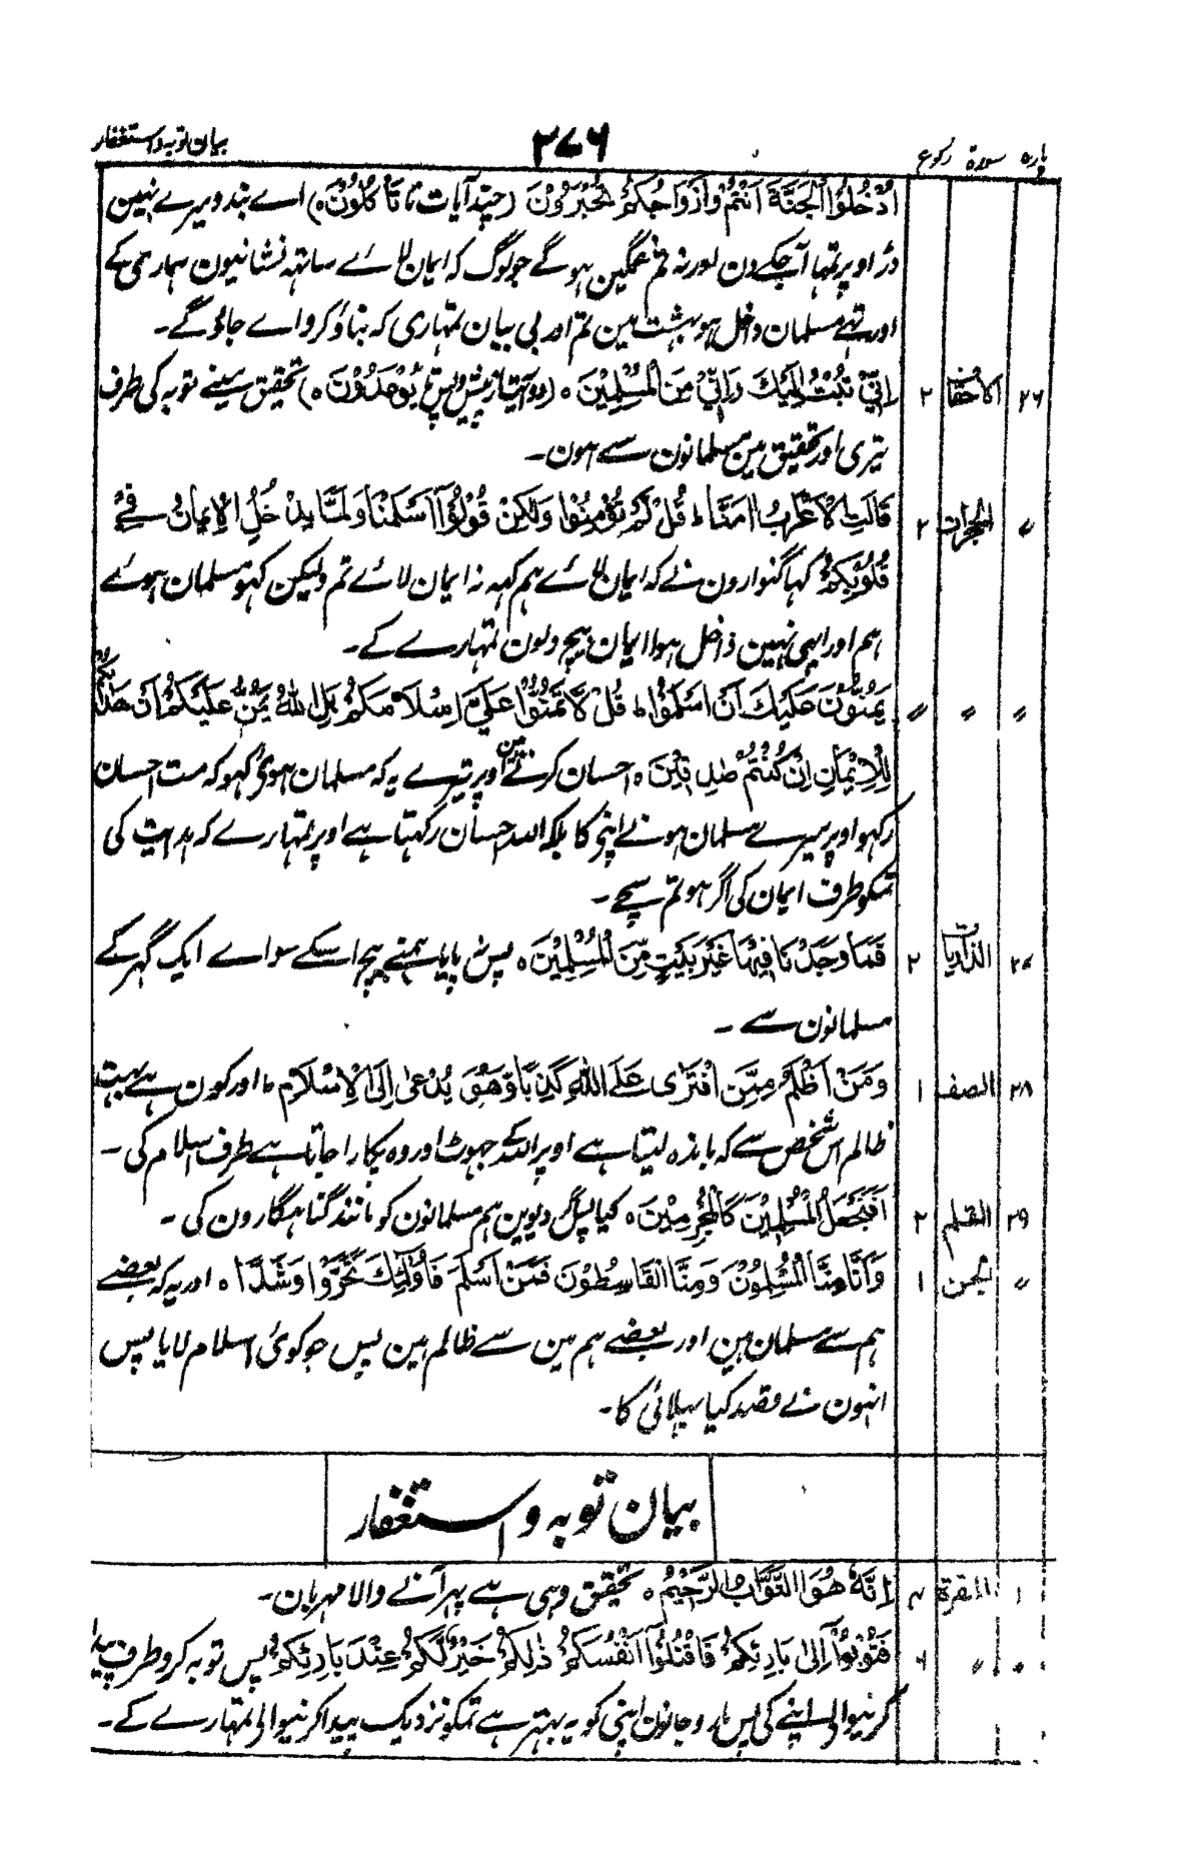 پارہ سورة رکوع ۲۷۶ بیان توبہ و استغفار
اُدْخُلُوا الْجَنَّةَ اَنْتُمْ وَاَزْوَاجُكُمْ تُحْبَرُوْنَ (چند آیات تا تَاْكُلُوْنَ ه) اے بندو میرے نہین
ڈر اوپر تمہارے آجکے دن اور نہ تم غمگین ہوگے جو لوگ کہ ایمان لائے ساتہہ نشانیون ہماری کے
اور تہے مسلمان داخل ہو بہشت مین تم اور بی بیان تمہاری کہ بناؤ کرواے جاؤگے۔
۲۶ الاحقاف ۲ اِنِّيْ تُبْتُ اِلَيْكَ وَاِنِّيْ مِنَ الْمُسْلِمِيْنَ ه ( يُوْعَدُوْنَ ه) تحقیق مینے توبہ کی طرف
تیری اور تحقیق مین مسلمانون سے ہون۔
〃 الحجرات ۲ قَالَتِ الْاَعْرَابُ اٰمَنَّا ط قُلْ لَّمْ تُؤْمِنُوْا وَلٰكِنْ قُوْلُوْٓا اَسْلَمْنَا وَلَمَّا يَدْخُلِ الْاِيْمَانُ فِيْ
قُلُوْبِكُمْ کہا گنوارون نے کہ ایمان لائے ہم کہہ نہ ایمان لائے تم ولیکن کہو مسلمان ہوئے
ہم اور ابہی نہین داخل ہوا ایمان بیچ دلون تمہارے کے۔
〃 〃 〃 يَمُنُّوْنَ عَلَيْكَ اَنْ اَسْلَمُوْا ط قُلْ لَّا تَمُنُّوْا عَلَيَّ اِسْلَامَكُمْ بَلِ اللّٰهُ يَمُنُّ عَلَيْكُمْ اَنْ هَدٰىكُمْ
لِلْاِيْمَانِ اِنْ كُنْتُمْ صٰدِقِيْنَ ه احسان کرتے ہین اوپر تیرے یہ کہ مسلمان ہوئ کہو کہ مت احسان
رکہو اوپر میرے مسلمان ہونے اپنی کا بلکہ اللہ احسان رکہتا ہے اوپر تمہارے کہ ہدایت کی
تمکو طرف ایمان کی اگر ہو تم سچے۔
۲۷ الذاریات ۲ فَمَا وَجَدْنَا فِيْهَا غَيْرَ بَيْتٍ مِّنَ الْمُسْلِمِيْنَ ه پس نہ پایا ہمنے بیچ اسکے سواے ایک گہر کے
مسلمانون سے۔
۲۸ الصف ۱ وَمَنْ اَظْلَمُ مِمَّنِ افْتَرٰى عَلَى اللّٰهِ كَذِبًا وَّهُوَ يُدْعٰى اِلَى الْاِسْلَامِ ط اور کون ہے بہت
ظالم اس شخص سے کہ باندہ لیتا ہے اوپر اللہ کے جہوٹ اور وہ پکارا جاتا ہے طرف اسلام کی۔
۲۹ القلم ۲ اَفَنَجْعَلُ الْمُسْلِمِيْنَ كَالْمُجْرِمِيْنَ ه کیا پس کر دیوین ہم مسلمانون کو مانند گناہگارون کی۔
〃 الجن ۱ وَاَنَّا مِنَّا الْمُسْلِمُوْنَ وَمِنَّا الْقَاسِطُوْنَ فَمَنْ اَسْلَمَ فَاُولٰٓئِكَ تَحَرَّوْا رَشَدًا ه اور یہ کہ بعضے
ہم سے مسلمان ہین اور بعضے ہم مین سے ظالم ہین پس جو کوئ اسلام لایا پس
انہون نے قصد کیا بہلائی کا۔
بیان توبہ و استغفار
۱ البقرة ۴ اِنَّهٗ هُوَ التَّوَّابُ الرَّحِيْمُ ه تحقیق وہی ہے پہر آنے والا مہربان۔
〃 〃 ۶ فَتُوْبُوْٓا اِلٰى بَارِئِكُمْ فَاقْتُلُوْٓا اَنْفُسَكُمْ ذٰلِكُمْ خَيْرٌ لَّكُمْ عِنْدَ بَارِئِكُمْ پس توبہ کرو طرف پیدا
کرنیوالے اپنے کی پس مارو جانون اپنی کو یہ بہتر ہے تمکو نزدیک پیدا کرنیوالی تمہارے کے۔